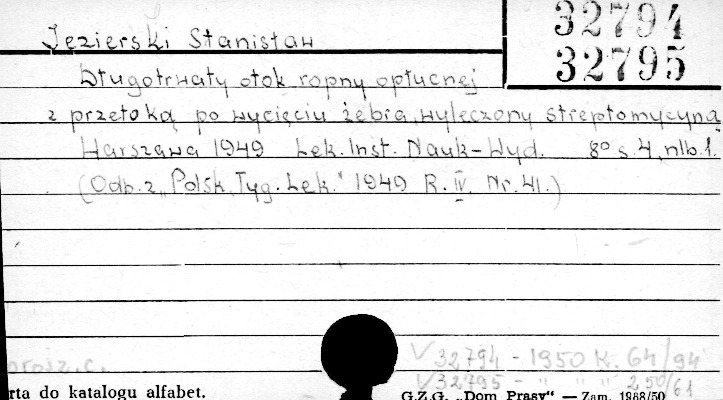 32794
Jezierski Stanisław
32795
Długotrwały otok ropny opłucnej
z przetoką po wycięciu żebra, wyleczony streptomycyną
Warszawa 1949 Lek. Inst. Nauk-Wyd. 8° s. 4, nlb. 1.
(Odb. z „Polsk. Tyg. Lek." 1949 R. IV. Nr. 41.)
V 32794 - 1950 K. 64/94
V 32795 - " " " 250/61
rta do katalogu alfabet.
G.Z.G. „Dom Prasy" — Zam. 1988/50